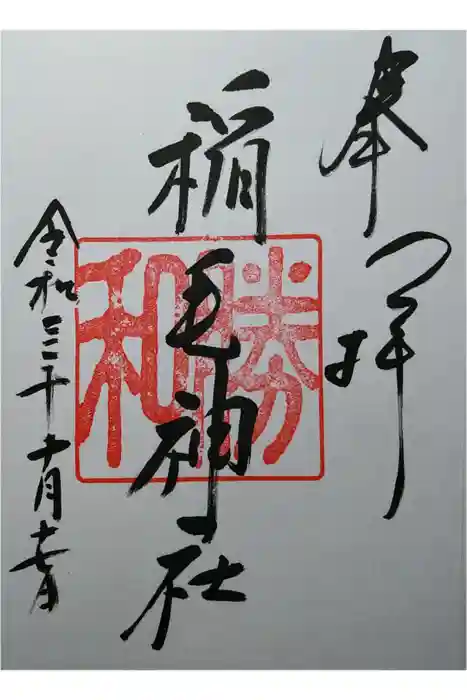 奉拝
稲毛神社
勝和
令和三年十月十七日